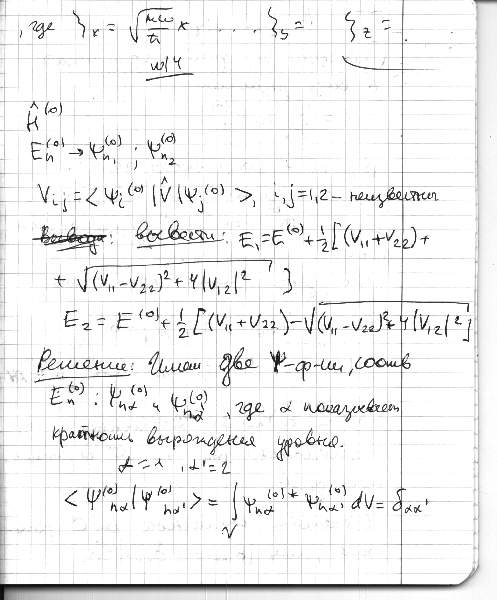 , где ξₓ = √(mω/ħ) x ... ξ_y = ... ξ_z = ...
ω/4
Ĥ⁽⁰⁾
Eₙ⁽⁰⁾ → ψₙ₁⁽⁰⁾ ; ψₙ₂⁽⁰⁾
Vᵢⱼ = <ψᵢ⁽⁰⁾ | V̂ | ψⱼ⁽⁰⁾>, i,j = 1,2 – неизвестны
вывести: E₁ = E⁽⁰⁾ + ½[(V₁₁ + V₂₂) +
+ √((V₁₁ – V₂₂)² + 4|V₁₂|²) ]
E₂ = E⁽⁰⁾ + ½[(V₁₁ + V₂₂) – √((V₁₁ – V₂₂)² + 4|V₁₂|²)]
Решение: Имеем две ψ-ф-ии, соотв
Eₙ⁽⁰⁾ : ψₙα⁽⁰⁾ и ψₙα'⁽⁰⁾, где α показывает
кратность вырождения уровня.
α = 1, α' = 2
<ψₙα⁽⁰⁾ | ψₙα'⁽⁰⁾> = ∫_V ψₙα⁽⁰⁾* ψₙα'⁽⁰⁾ dV = δαα'